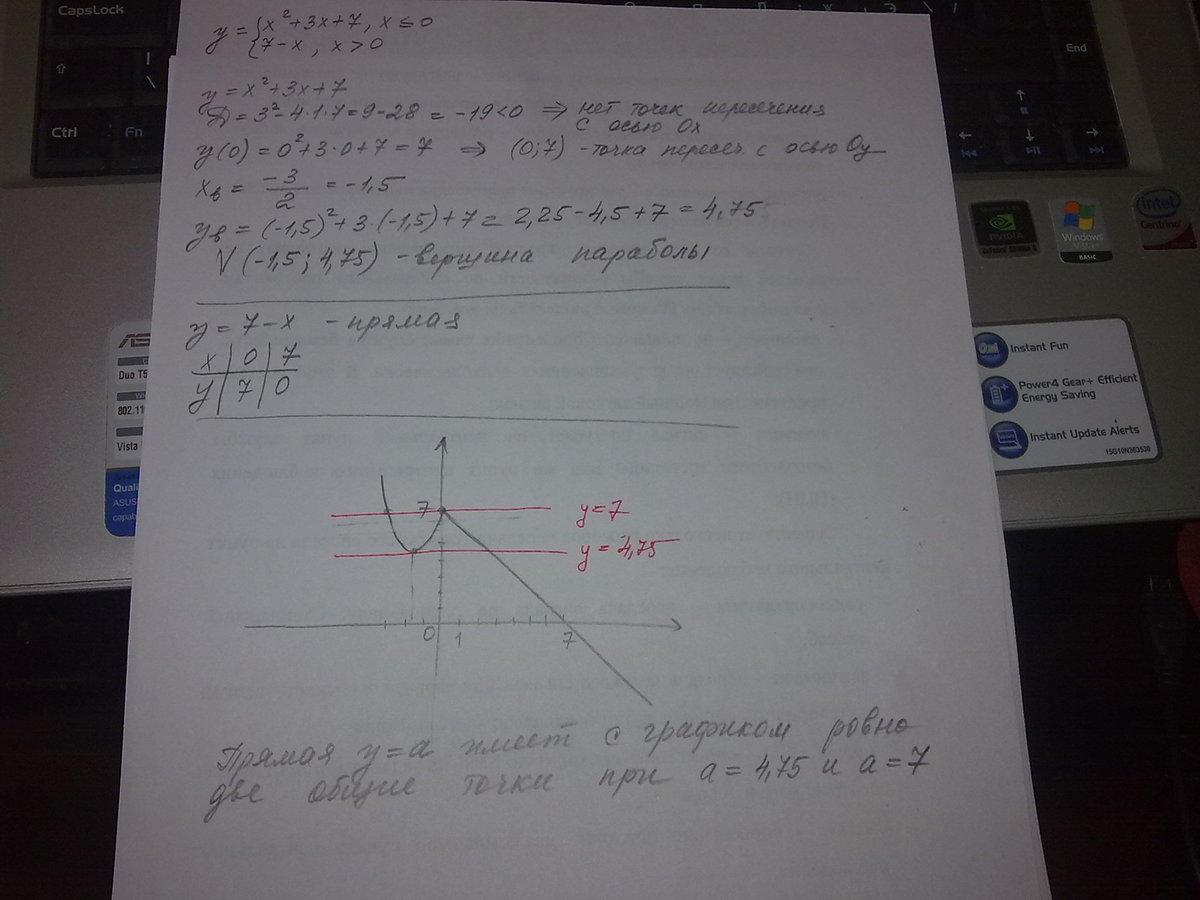 CapsLock
End
Ctrl
Fn
y = { x² + 3x + 7, x ≤ 0
{ 7 - x, x > 0
y = x² + 3x + 7
D = 3² - 4·1·7 = 9 - 28 = -19 < 0 ⇒ нет точек пересечения
с осью Ox
y(0) = 0² + 3·0 + 7 = 7 ⇒ (0; 7) - точка пересеч. с осью Oy
xв = -3/2 = -1,5
yв = (-1,5)² + 3·(-1,5) + 7 = 2,25 - 4,5 + 7 = 4,75
V (-1,5; 4,75) - вершина параболы
y = 7 - x - прямая
x | 0 | 7
y | 7 | 0
7
y = 7
y = 4,75
0 1 7
Прямая y = a имеет с графиком ровно
две общие точки при a = 4,75 и a = 7
NVIDIA
Windows
BASIC
intel
Centrino
Instant Fun
Power4 Gear+ Efficient
Energy Saving
Instant Update Alerts
15G10N363530
Duo T5
802.11
Vista
Quali
ASUS
capab